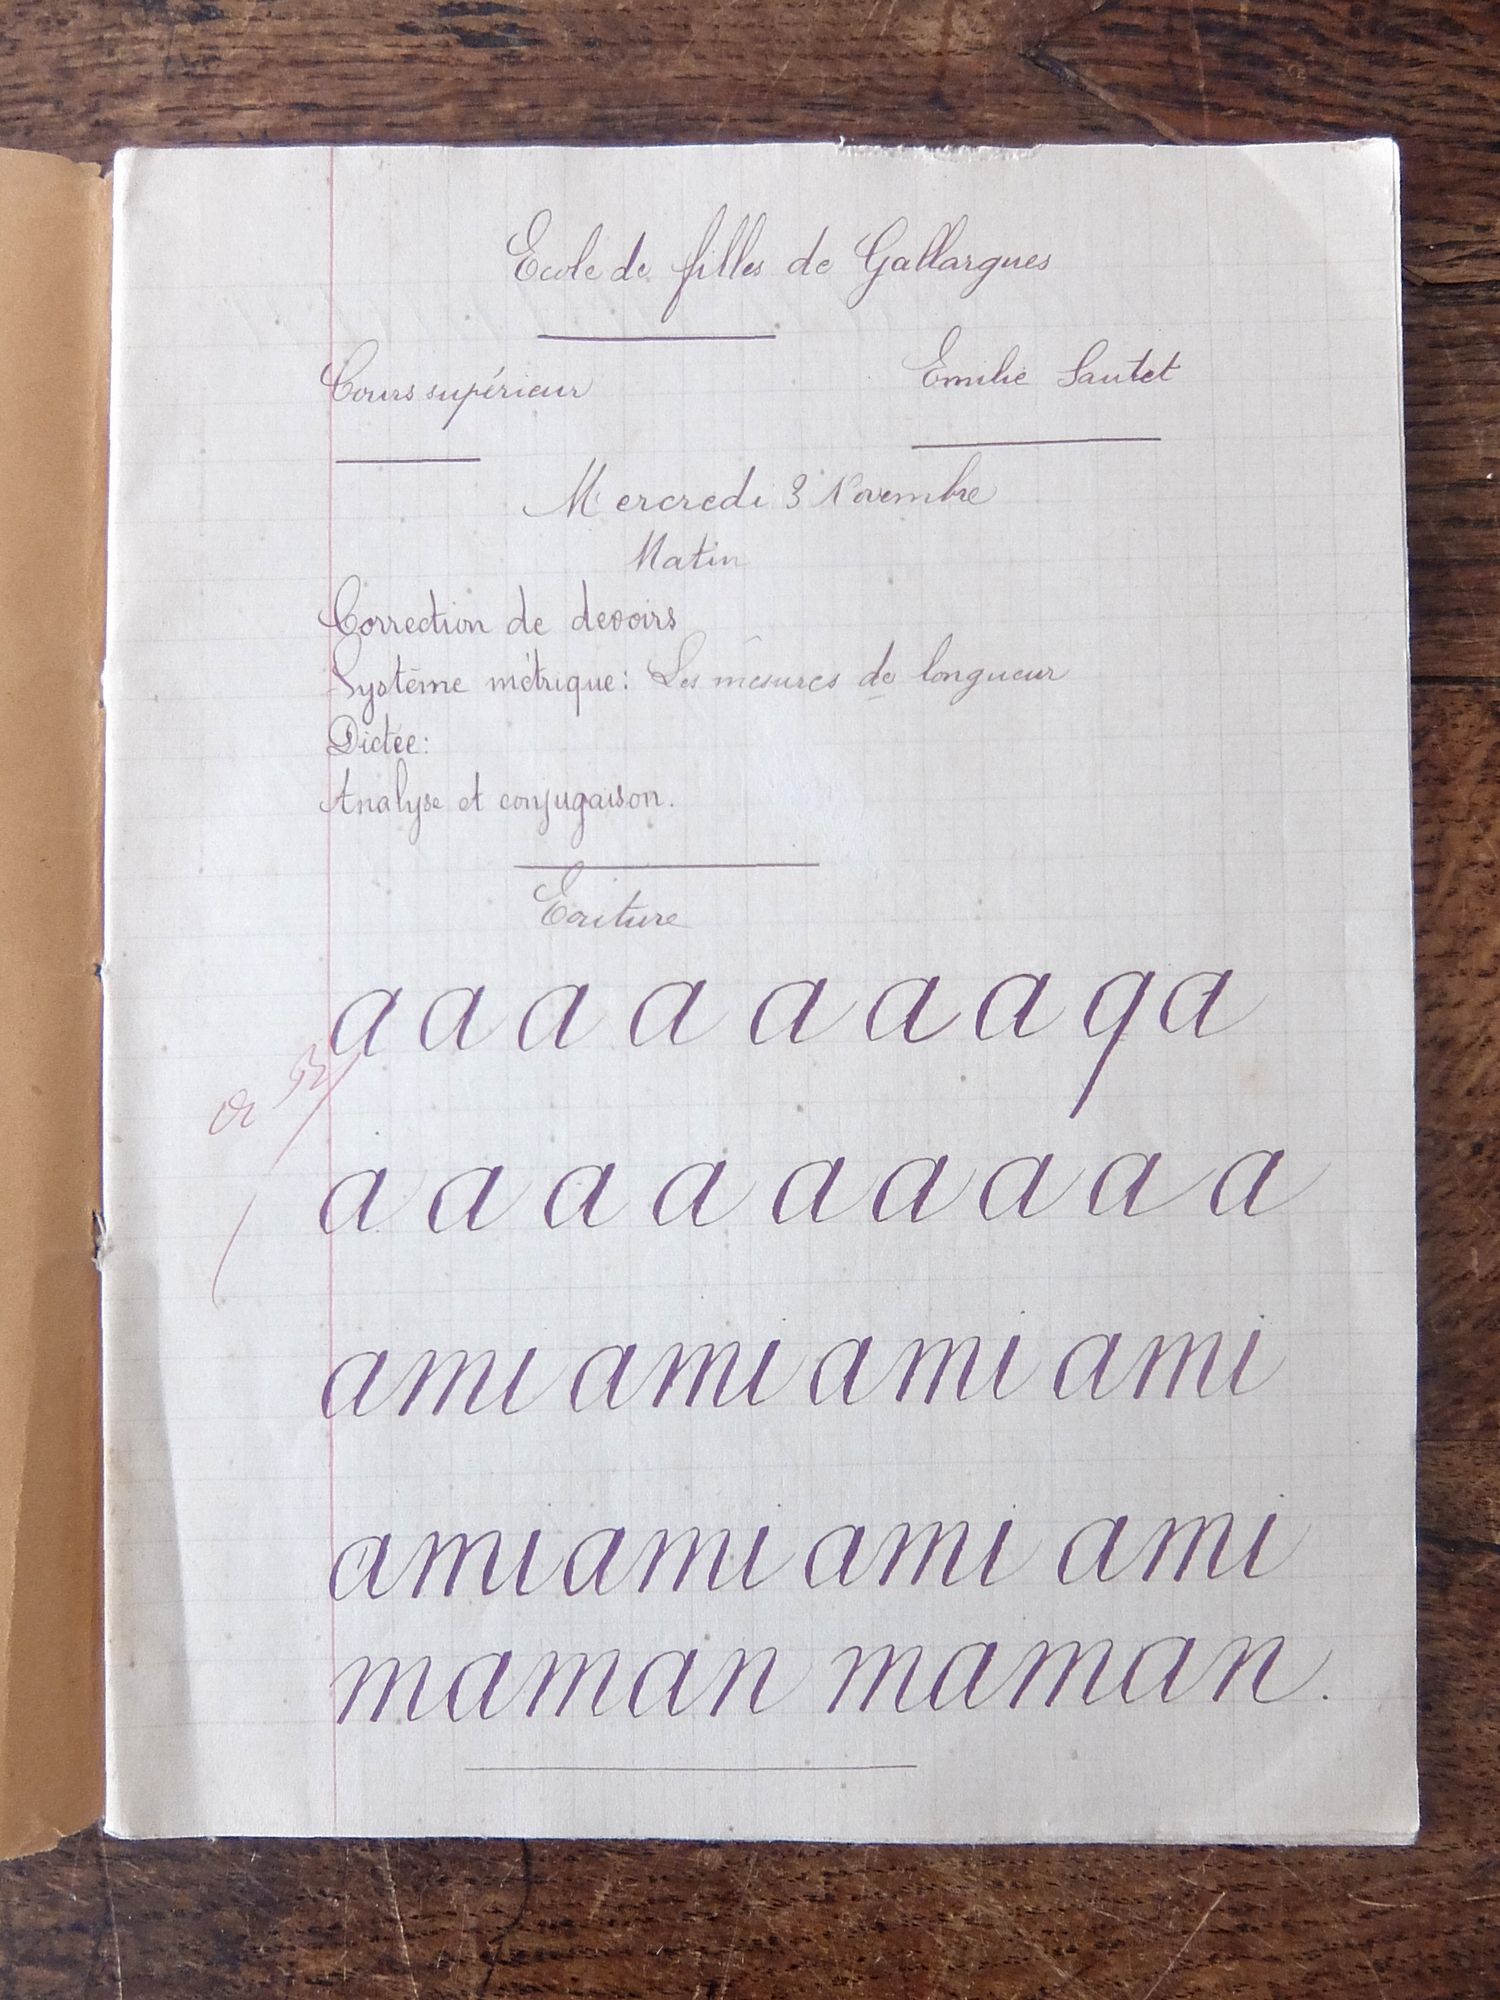 Ecole de filles de Gallargues
Cours supérieur
Emilie Sautet
Mercredi 3 Novembre
Matin
Correction de devoirs
Système métrique: Les mesures de longueur
Dictée:
Analyse et conjugaison.
Ecriture
a a a a a a a q a
a a a a a a a a a
ami ami ami ami
ami ami ami ami
maman maman.